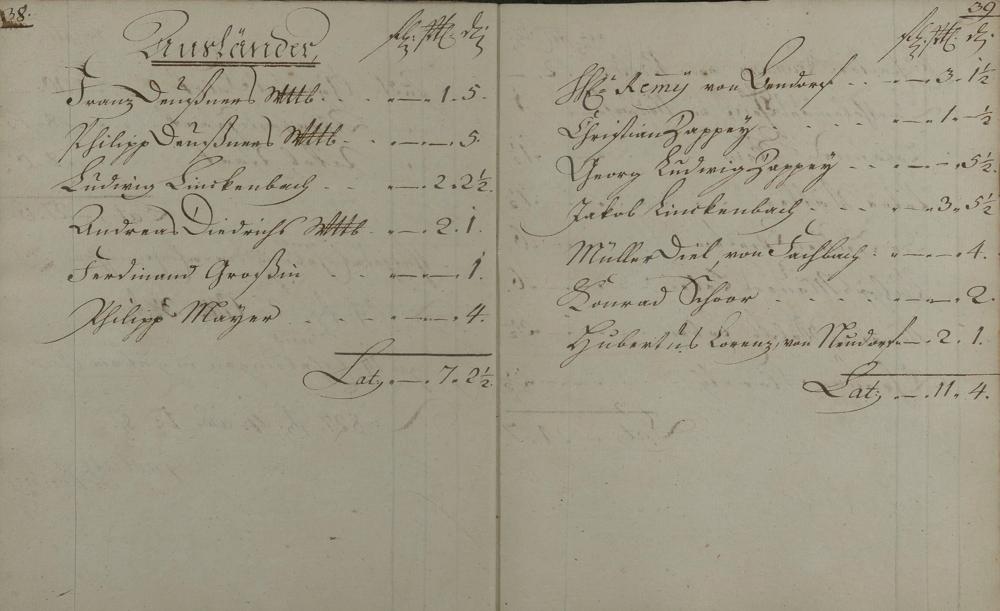 38.
Ausländer,
Franz Deußners Wttb. . . " — " 1 . 5 .
Philipp Deußners Wttb . . " — " — " 5 .
Ludwig Linckenbach . . " — " 2 " 2½ .
Andreas Diedrichs Wttb . " — " 2 . 1 .
Ferdinand Großin . . " — " — " 1 .
Philipp Mayer . . . . " — " — " 4 .
Lat: " — " 7 " 2½ .
39
Remÿ von Bendorf . . " — " 3 " 1½
Christian Zappeÿ . . . " — " 1 " — ½
Georg Ludwig Zappeÿ . . . " — " — " 5½
Jakob Linckenbach . . . " — " 3 " 5½
Müller Diel, von Fachbach : " — " — " 4 .
Konrad Schoor . . . . . " — " — " 2 .
Hubertus Lorenz, von Neudorf " — " 2 . 1 .
Lat: " — " 11 " 4 .